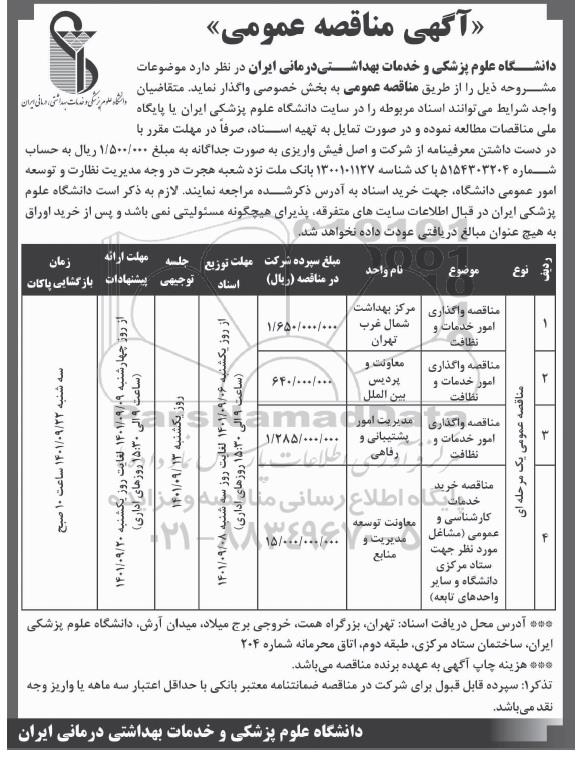 «آگهی مناقصه عمومی»
دانشگاه علوم پزشکی و خدمات بهداشتی، درمانی ایران
دانشـــگاه علوم پزشکی و خدمات بهداشـــتی‌درمانی ایران در نظر دارد موضوعات
مشـــروحه ذیل را از طریق مناقصه عمومی به بخش خصوصی واگذار نماید. متقاضیان
واجد شرایط می‌توانند اسناد مربوطه را در سایت دانشگاه علوم پزشکی ایران یا پایگاه
ملی مناقصات مطالعه نموده و در صورت تمایل به تهیه اســـناد، صرفاً در مهلت مقرر با
در دست داشتن معرفینامه از شرکت و اصل فیش واریزی به صورت جداگانه به مبلغ ۱/۵۰۰/۰۰۰ ریال به حساب
شـــماره ۵۱۵۴۳۰۳۲۰۴ با کد شناسه ۱۳۰۰۱۰۱۱۲۷ بانک ملت نزد شعبه هجرت در وجه مدیریت نظارت و توسعه
امور عمومی دانشگاه، جهت خرید اسناد به آدرس ذکرشـــده مراجعه نمایند. لازم به ذکر است دانشگاه علوم
پزشکی ایران در قبال اطلاعات سایت های متفرقه، پذیرای هیچگونه مسئولیتی نمی باشد و پس از خرید اوراق
به هیچ عنوان مبالغ دریافتی عودت داده نخواهد شد.
ردیف نوع موضوع نام واحد مبلغ سپرده شرکت در مناقصه (ریال) مهلت توزیع اسناد جلسه توجیهی مهلت ارائه پیشنهادات زمان بازگشایی پاکات
مناقصه عمومی یک مرحله ای
۱ مناقصه واگذاری امور خدمات و نظافت مرکز بهداشت شمال غرب تهران ۱/۶۵۰/۰۰۰/۰۰۰
۲ مناقصه واگذاری امور خدمات و نظافت معاونت و پردیس بین الملل ۶۴۰/۰۰۰/۰۰۰
۳ مناقصه واگذاری امور خدمات و نظافت مدیریت امور پشتیبانی و رفاهی ۱/۲۸۵/۰۰۰/۰۰۰
۴ مناقصه خرید خدمات کارشناسی و عمومی (مشاغل مورد نظر جهت ستاد مرکزی دانشگاه و سایر واحدهای تابعه) معاونت توسعه مدیریت و منابع ۱۵/۰۰۰/۰۰۰/۰۰۰
از روز یکشنبه ۱۴۰۱/۰۹/۰۶ لغایت روز سه شنبه ۱۴۰۱/۰۹/۰۸
(ساعت ۹ الی ۱۵:۳۰ روزهای اداری)
روز یکشنبه ۱۴۰۱/۰۹/۱۳
از روز چهارشنبه ۱۴۰۱/۰۹/۰۹ لغایت روز یکشنبه ۱۴۰۱/۰۹/۲۰
(ساعت ۹ الی ۱۵:۳۰ روزهای اداری)
سه شنبه ۱۴۰۱/۰۹/۲۲ ساعت ۱۰ صبح
ParsNamadData
پایگاه اطلاع رسانی مناقصه و مزایده
۰۲۱-۸۸۳۴۹۶۷۰-۵
*** آدرس محل دریافت اسناد: تهران، بزرگراه همت، خروجی برج میلاد، میدان آرش، دانشگاه علوم پزشکی
ایران، ساختمان ستاد مرکزی، طبقه دوم، اتاق محرمانه شماره ۲۰۴
*** هزینه چاپ آگهی به عهده برنده مناقصه می‌باشد.
تذکر۱: سپرده قابل قبول برای شرکت در مناقصه ضمانتنامه معتبر بانکی با حداقل اعتبار سه ماهه یا واریز وجه
نقد می‌باشد.
دانشگاه علوم پزشکی و خدمات بهداشتی درمانی ایران